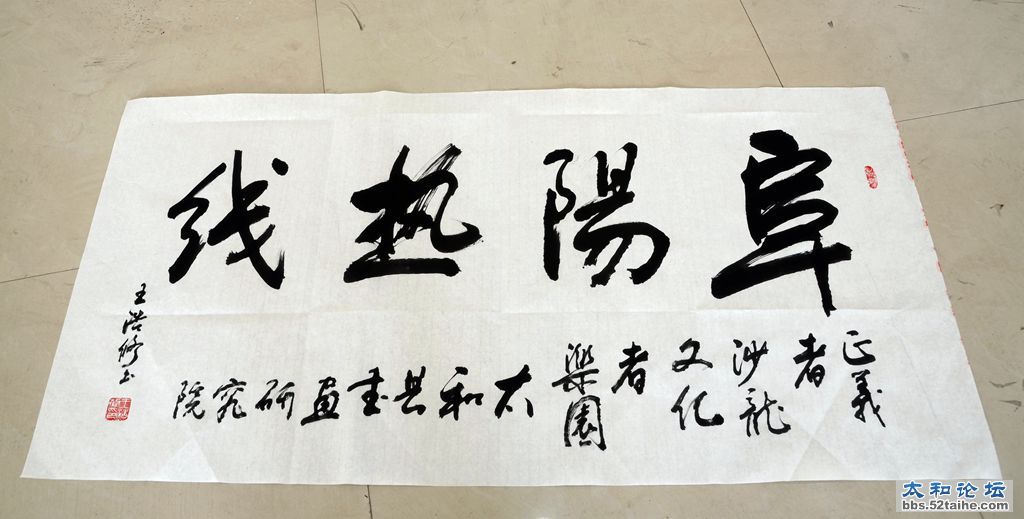 阜陽热线
正義
者
沙龍
文化
者
樂園
太和县書畫研究院
王浩修书
太和论坛
bbs.52taihe.com